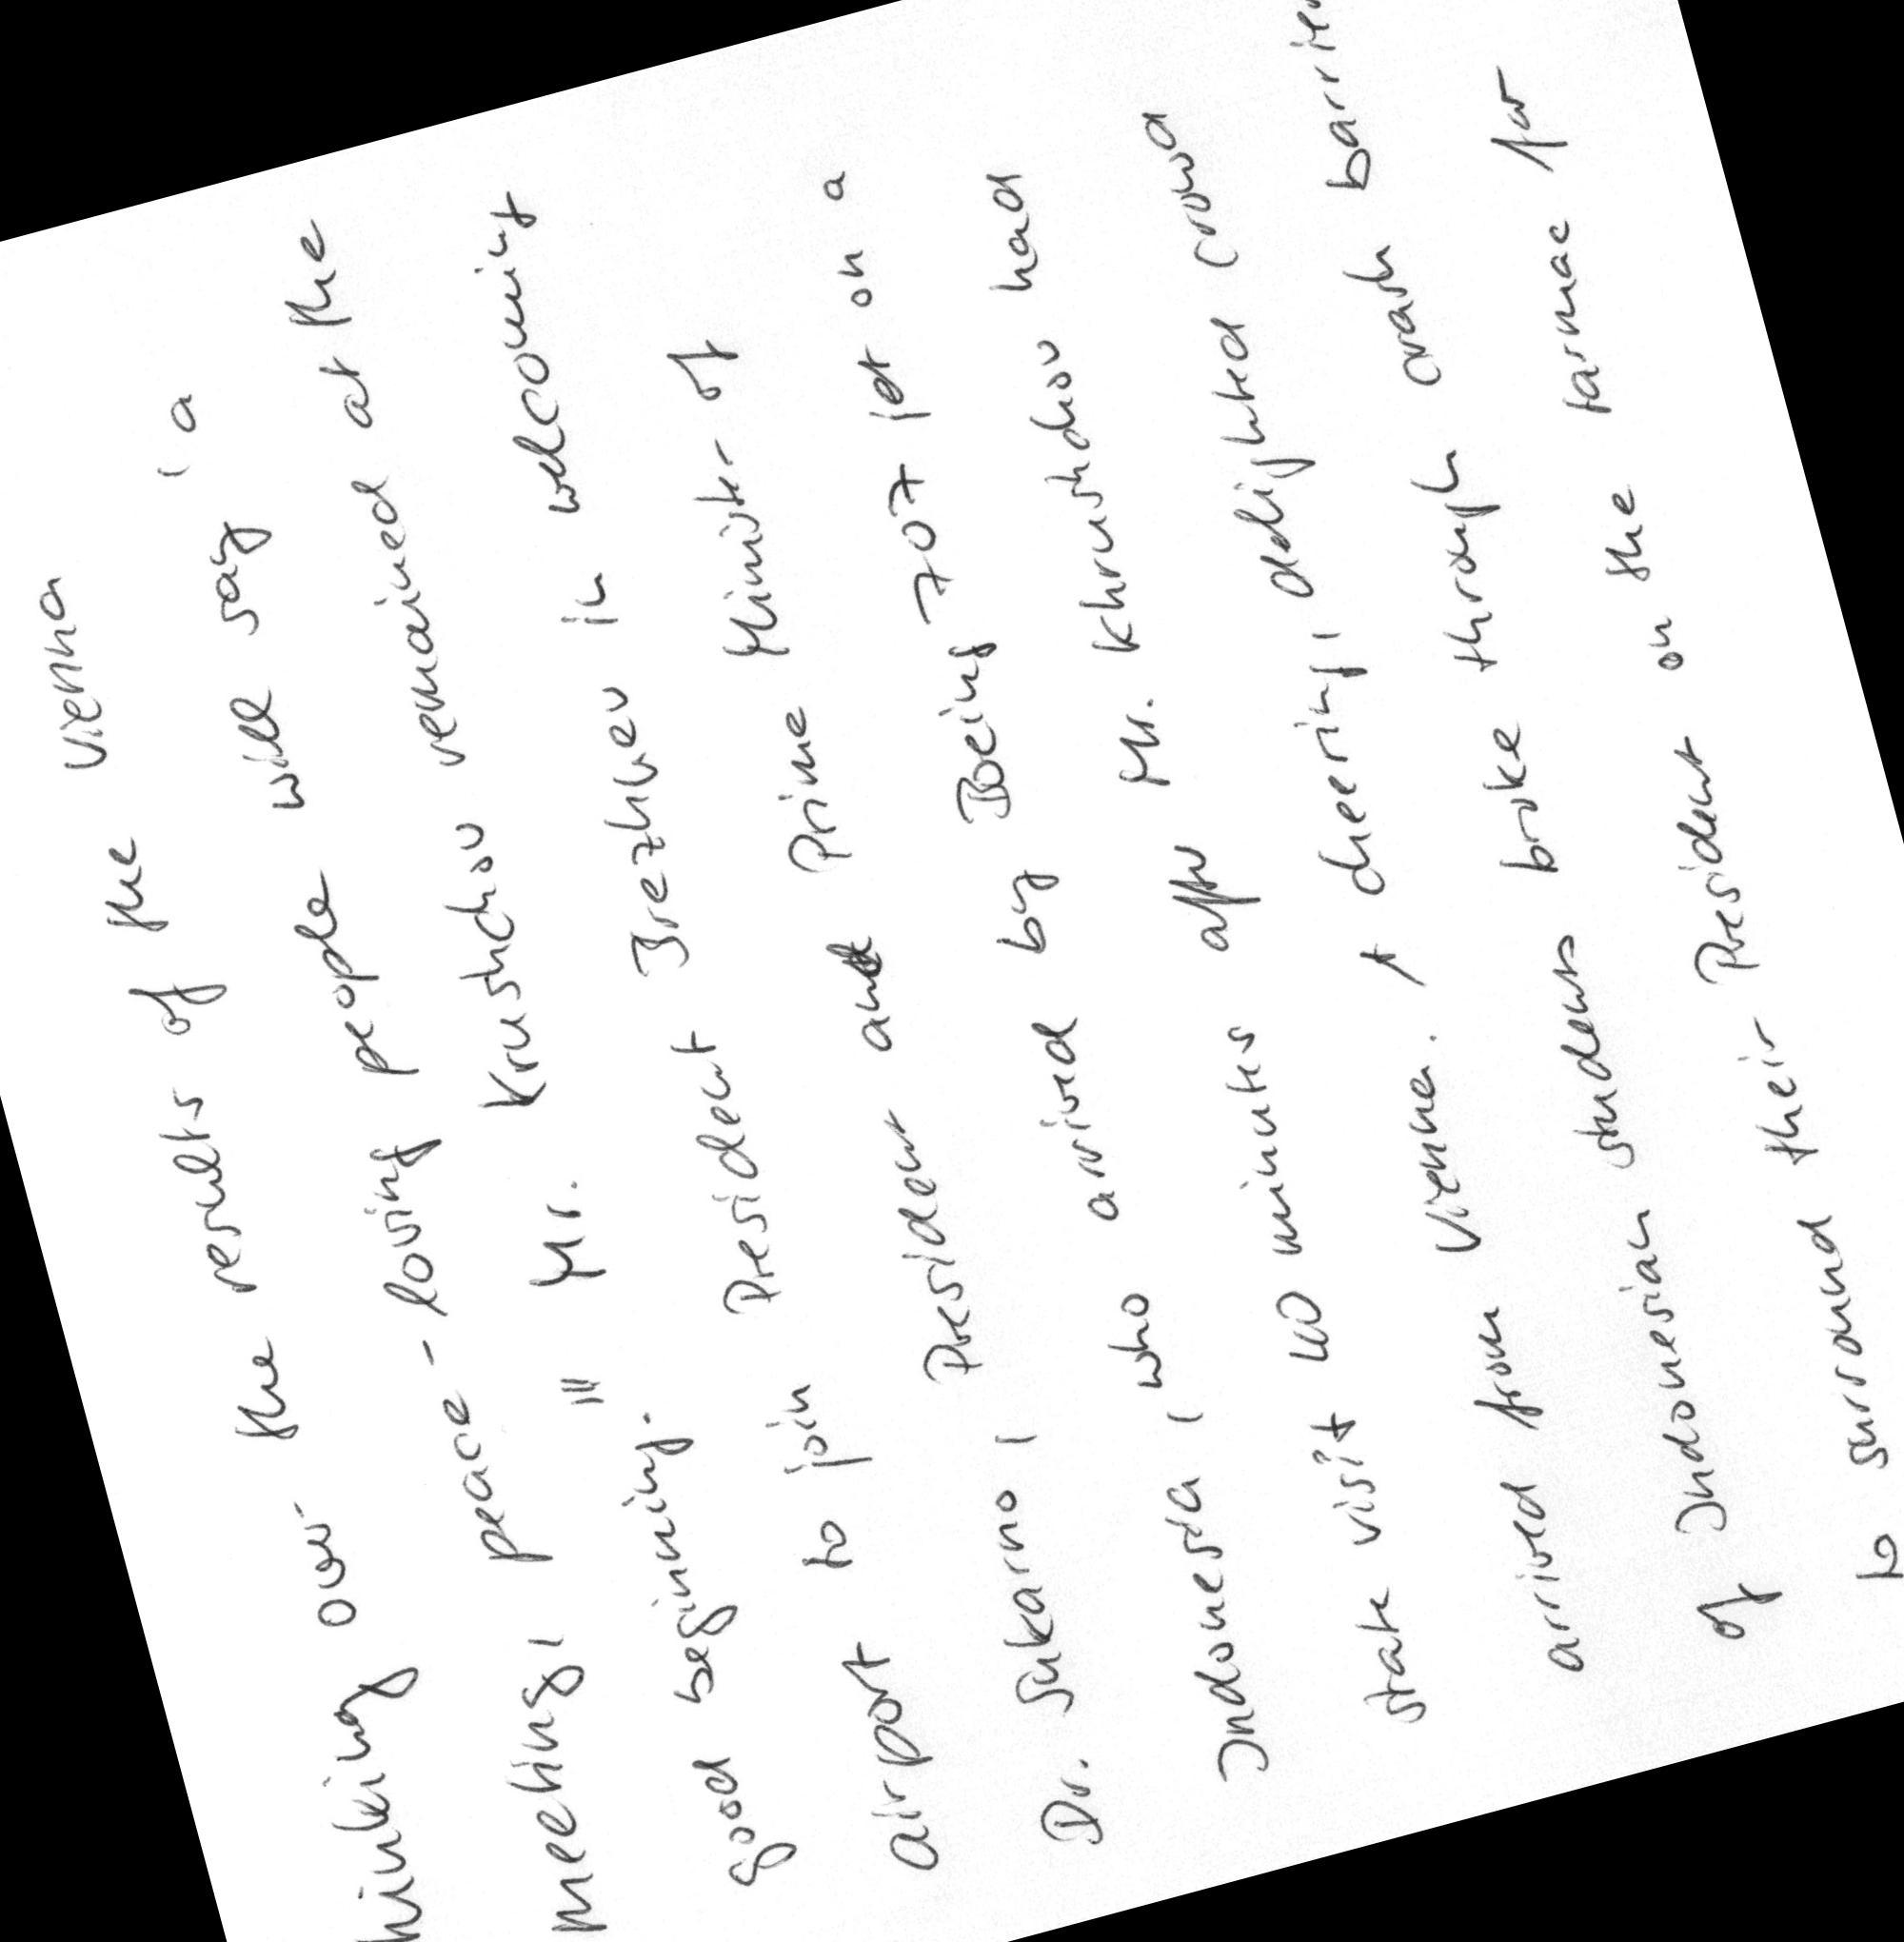 thinking over the results of the Vienna
meeting, peace-loving people will say, a
good beginning." Mr. Krushchov remained at the
airport to join President Brezhnev in welcoming
Dr. Sukarno, President and Prime Minister of
Indonesia, who arrived by Boeing 707 jet on a
state visit 40 minutes after Mr. Khrushchov had
arrived from Vienna. A cheering, delighted crowd
of Indonesian students broke through crash
to surround their President on the tarmac for